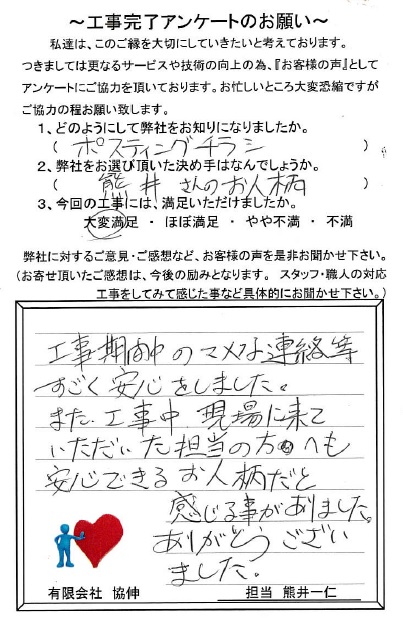 ～工事完了アンケートのお願い～
私達は、このご縁を大切にしていきたいと考えております。
つきましては更なるサービスや技術の向上の為、『お客様の声』として
アンケートにご協力を頂いております。お忙しいところ大変恐縮ですが
ご協力の程お願い致します。
1、どのようにして弊社をお知りになりましたか。
（ ポスティングチラシ ）
2、弊社をお選び頂いた決め手はなんでしょうか。
（ 熊井さんのお人柄 ）
3、今回の工事には、満足いただけましたか。
大変満足 ・ ほぼ満足 ・ やや不満 ・ 不満
弊社に対するご意見・ご感想など、お客様の声を是非お聞かせ下さい。
（お寄せ頂いたご感想は、今後の励みとなります。 スタッフ・職人の対応
工事をしてみて感じた事など具体的にお聞かせ下さい。）
工事期間中のマメな連絡等
すごく安心をしました。
また、工事中、現場に来て
いただいた担当の方々も
安心できるお人柄だと
感じる事がありました。
ありがとうござい
ました。
有限会社 協伸
担当 熊井一仁